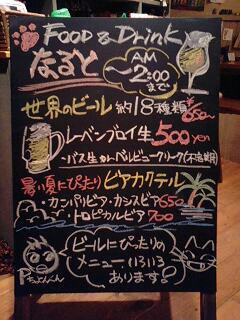 FOOD & Drink
なると
AM
〜2:00
まで
世界のビール 約18種類 ¥650〜
レーベンブロイ生 500yen
暑い夏にぴったり ビアカクテル
・カンパリビア・カシスビア ¥650
・トロピカルビア 700
ビールにぴったりの
メニューいろいろ
あります♪